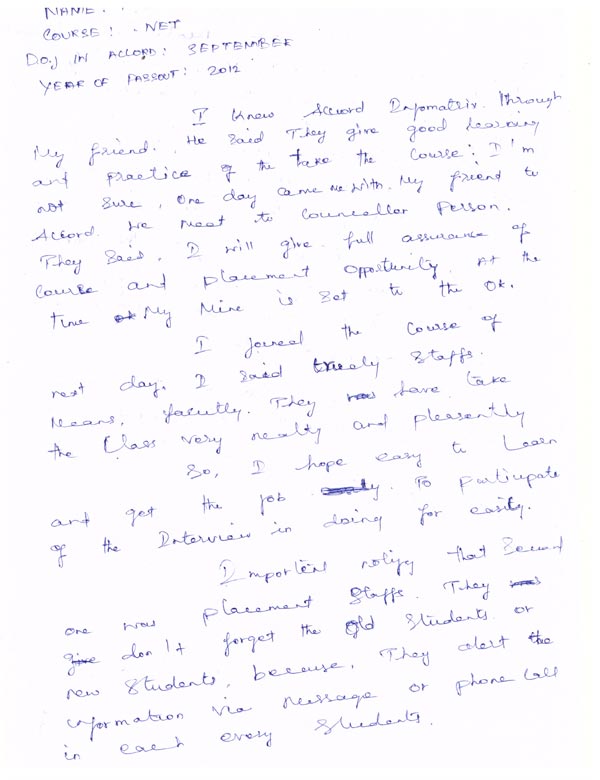 NAME :
COURSE : .NET
D.O.J IN ACCORD : SEPTEMBER
YEAR OF PASSOUT : 2012
I Knew Accord Infomatrix. Through
My friend. He said They give good learning
and practice of the take the course; I'm
not sure, one day came me with. My friend to
Accord. We meet to Councellor Person.
They Said, I will give full assurance of
Course and placement opportunity. At the
time My Mine is set to the Ok.
I joined the Course of
next day. I said truely Staffs.
Means, faculty. They have take
the Class very neatly and pleasently
So, I hope easy to Learn
and get the job. To participate
of the Interview in doing for easily.
I important notify that Second
one was placement Staffs. They
don't forget the Old Students or
new Students, because, They alert the
information via message or phone Call
in each every Students.